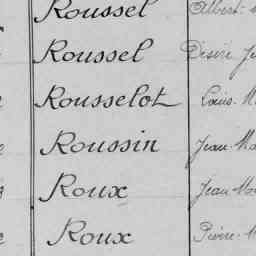 Roussel Albert
Roussel Désiré
Rousselot Louis
Roussin Jean
Roux Jean
Roux Pierre